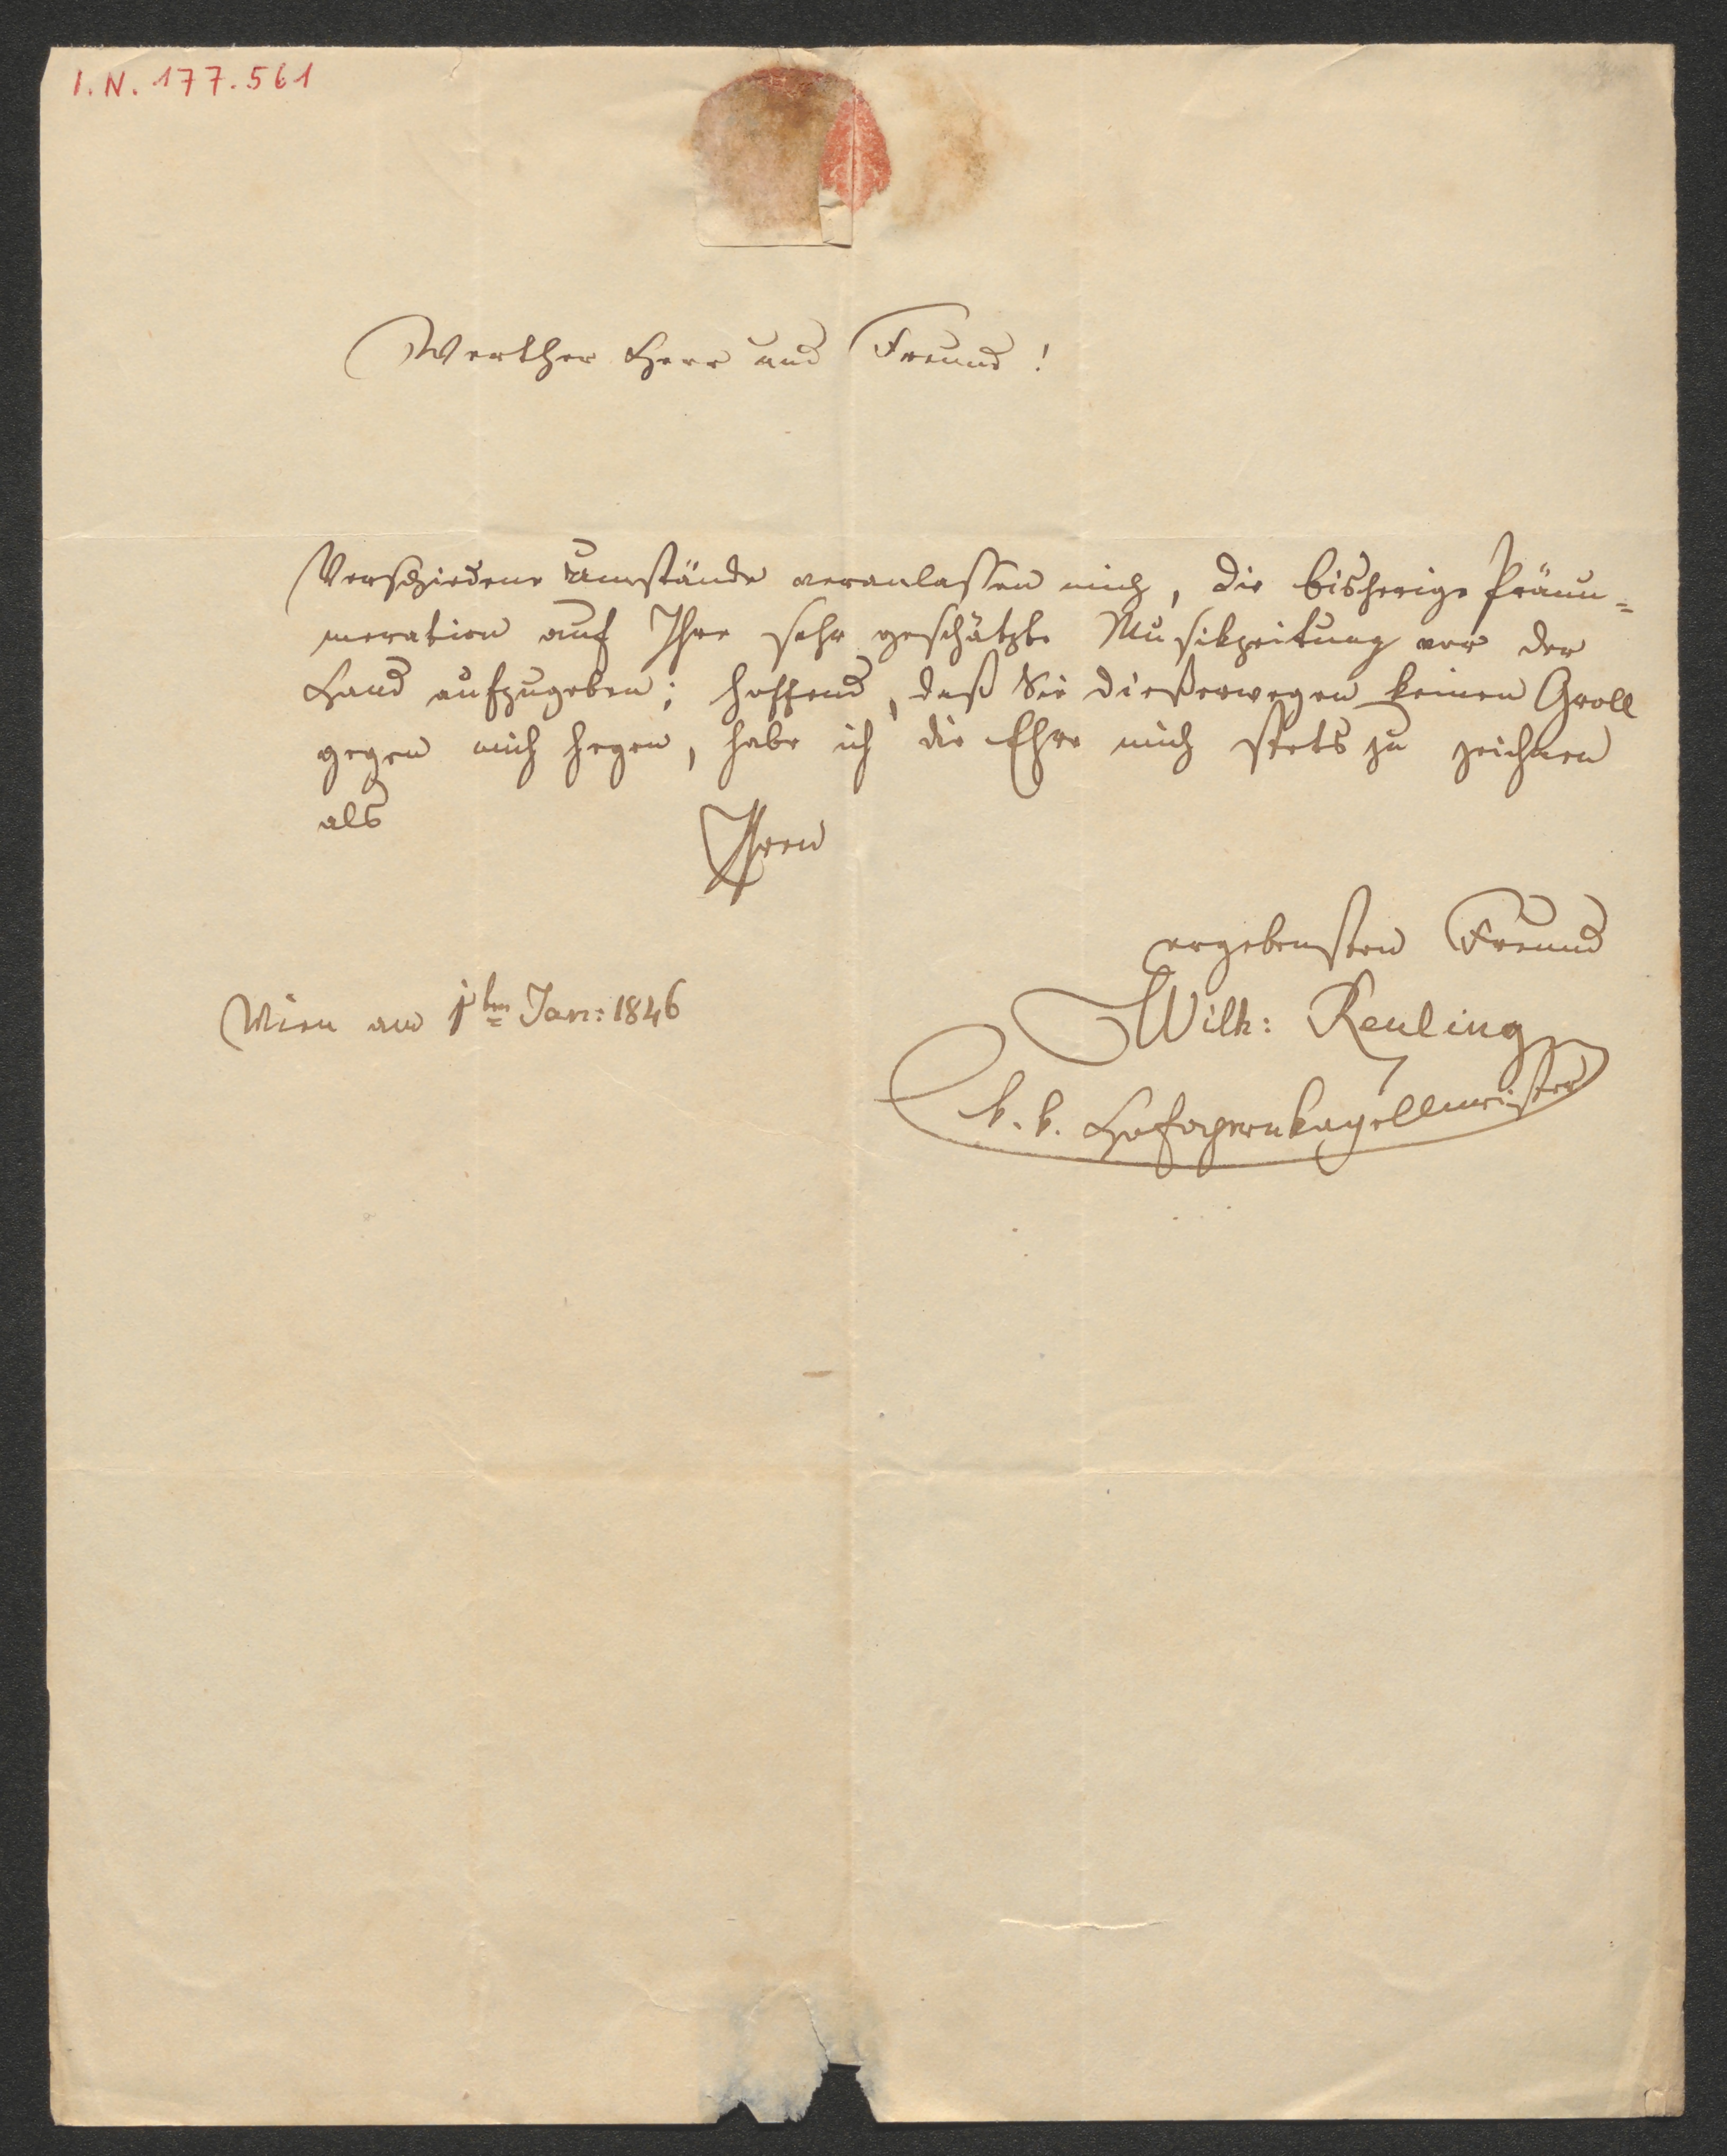 I. N. 177.561
Werther Herr und Freund!
Verschiedene Umstände veranlassen mich, die bisherige Pränu=
meration auf Ihre sehr geschätzte Musikzeitung vor der
Hand aufzugeben; hoffend, daß Sie dießerwegen keinen Groll
gegen mich hegen, habe ich die Ehre mich stets zu zeichnen
als
Ihren
ergebensten Freund
Wien am 1ten Jan: 1846
Wilh: Reuling
k. k. Hofopernkapellmeister